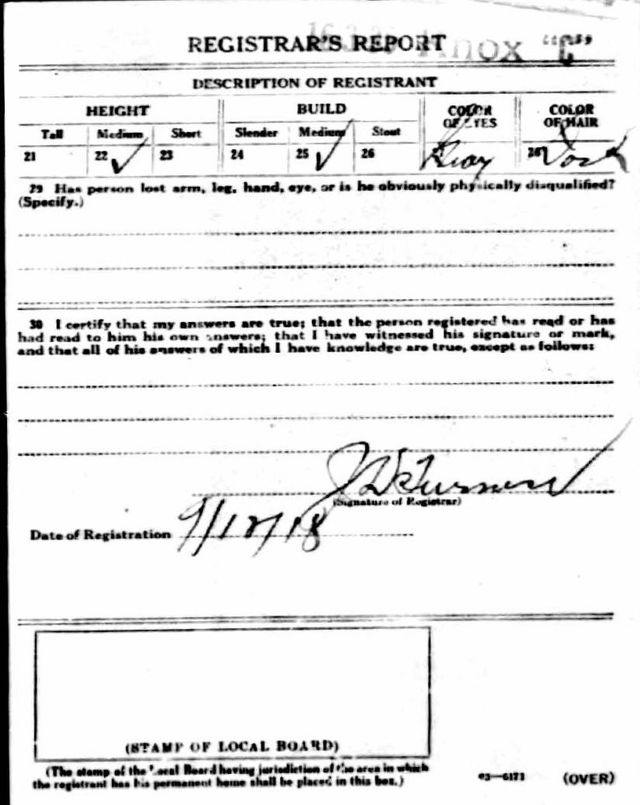 REGISTRAR'S REPORT Knox "C"
DESCRIPTION OF REGISTRANT
HEIGHT BUILD COLOR OF EYES COLOR OF HAIR
Tall Medium Short Slender Medium Stout
21 22 ✓ 23 24 25 ✓ 26 Gray Dark
29 Has person lost arm, leg, hand, eye, or is he obviously physically disqualified?
(Specify.)
30 I certify that my answers are true; that the person registered has read or has
had read to him his own answers; that I have witnessed his signature or mark,
and that all of his answers of which I have knowledge are true, except as follows:
(Signature of Registrar)
Date of Registration 9/12/18
(STAMP OF LOCAL BOARD)
(The stamp of the Local Board having jurisdiction of the area in which
the registrant has his permanent home shall be placed in this box.)
03—6171 (OVER)